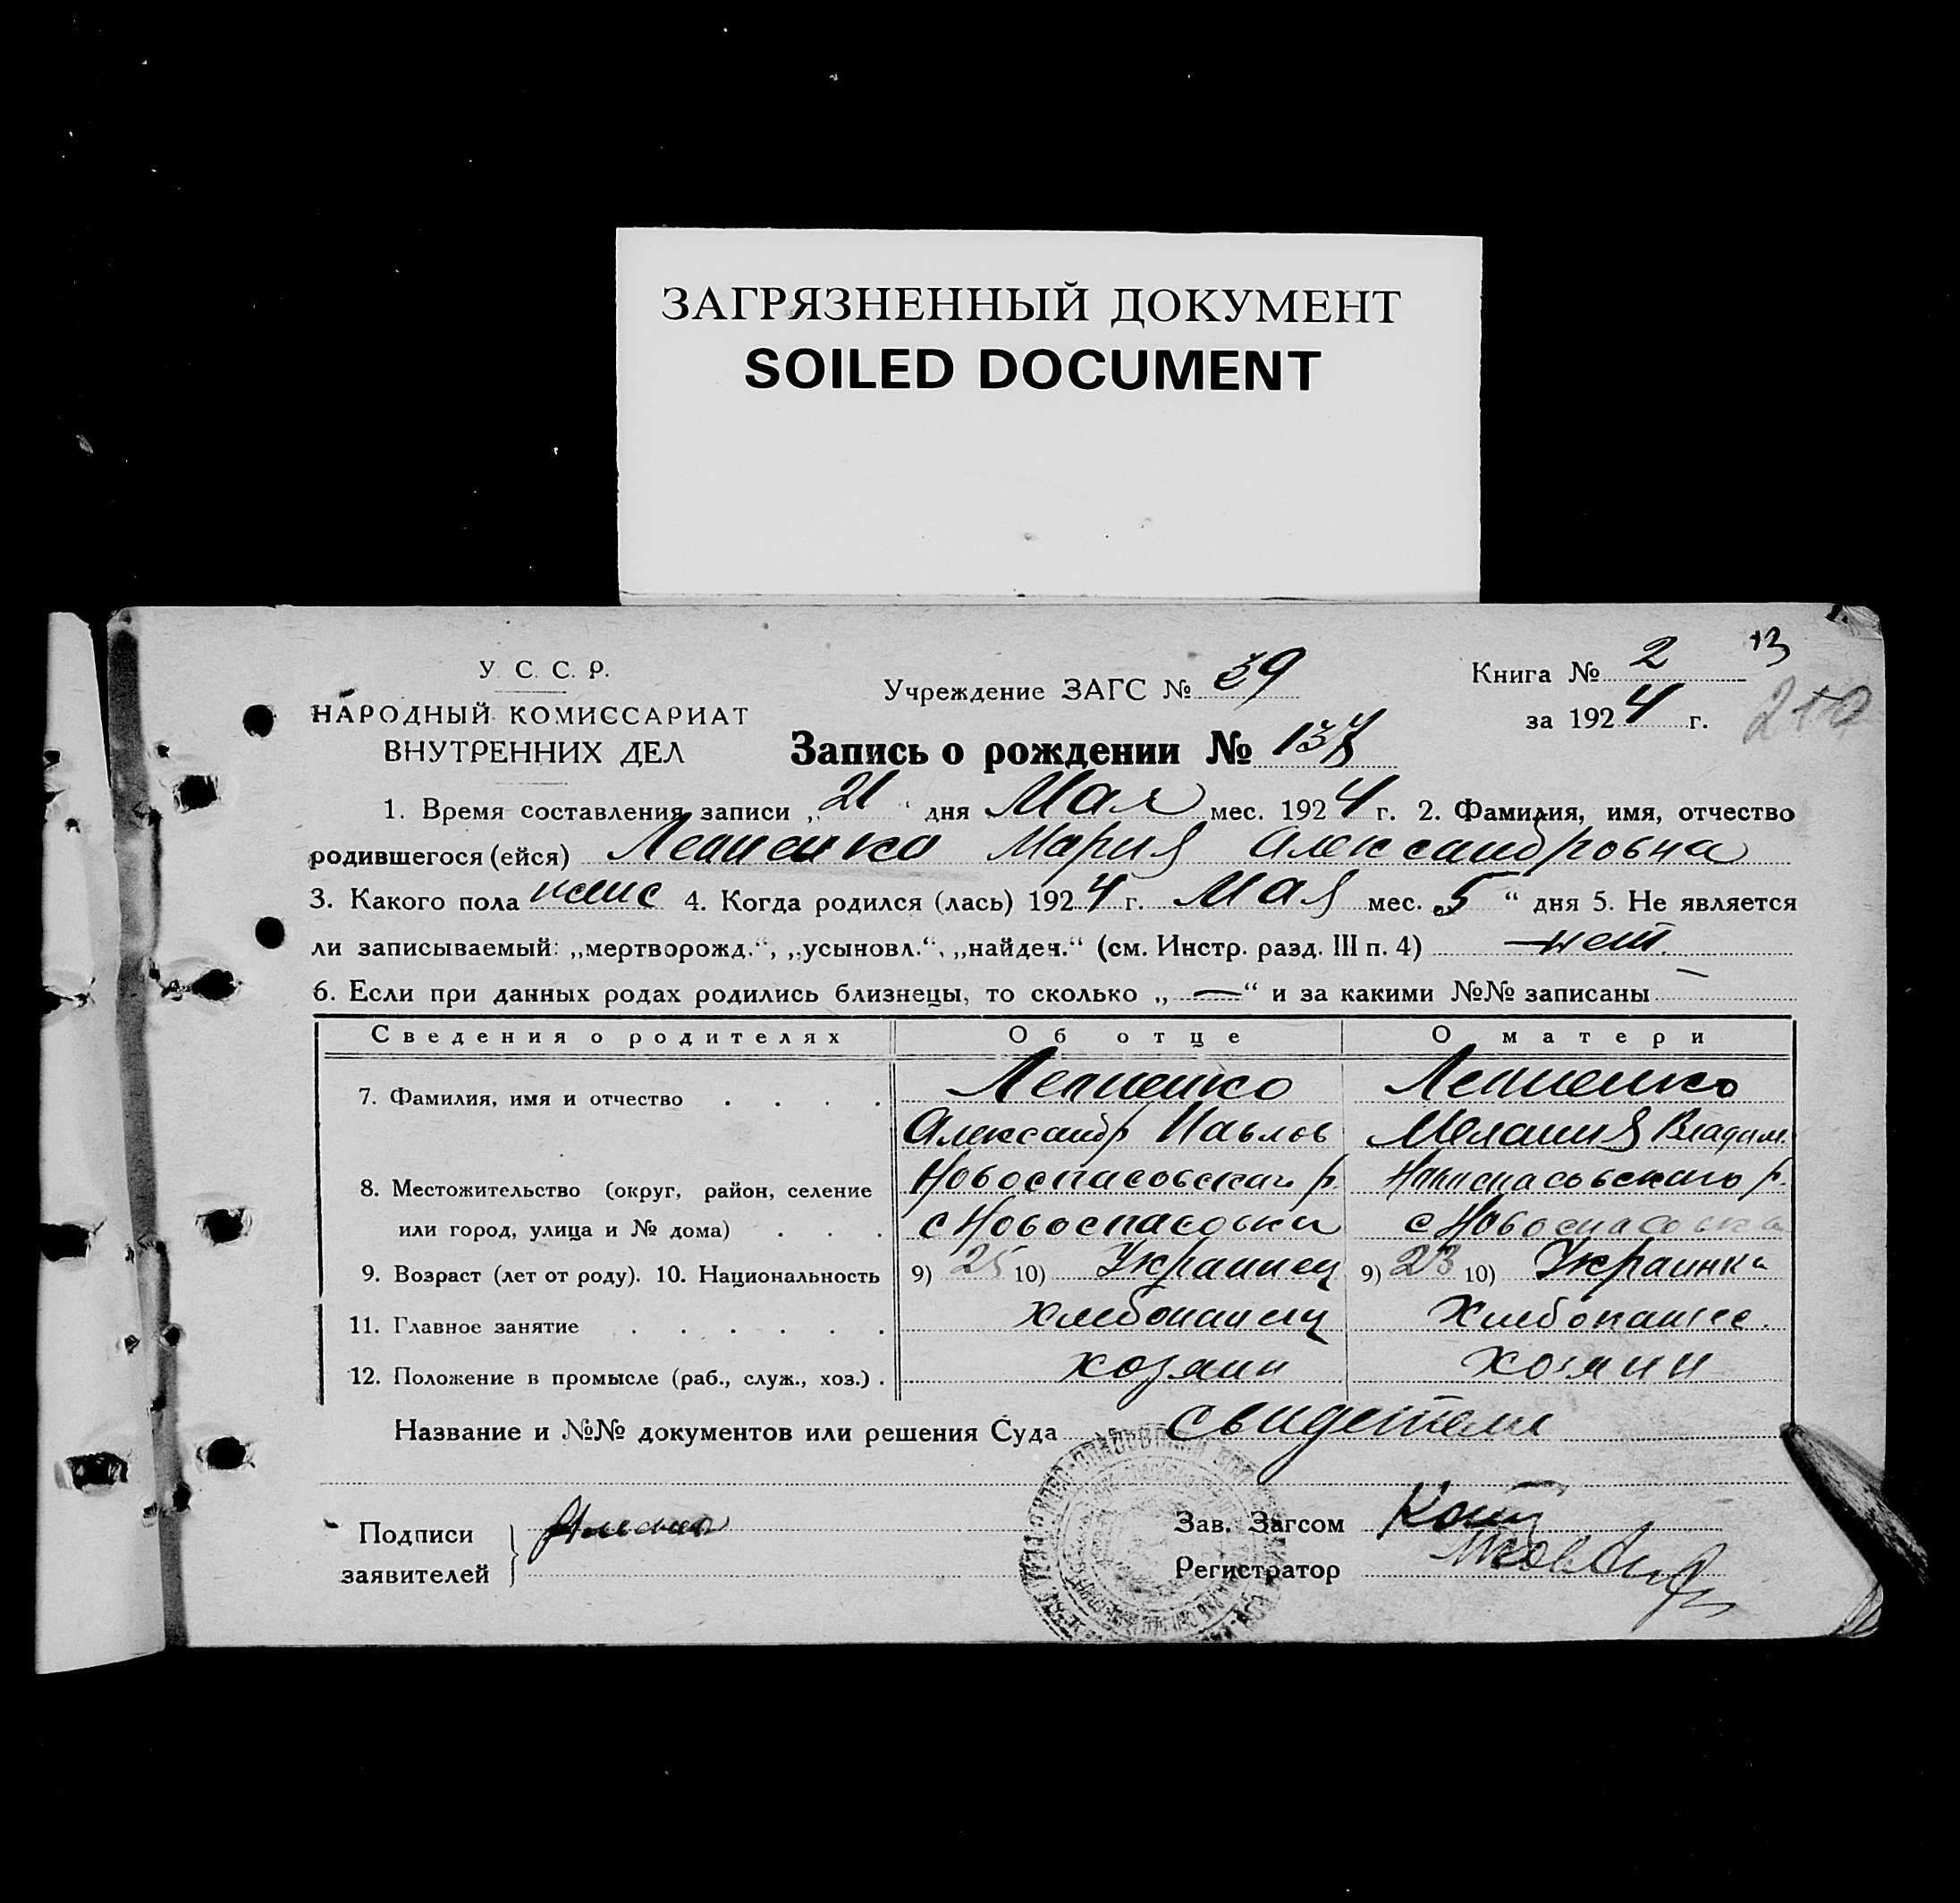 ЗАГРЯЗНЕННЫЙ ДОКУМЕНТ
SOILED DOCUMENT
13
У. С. С. Р.
НАРОДНЫЙ КОМИССАРИАТ
ВНУТРЕННИХ ДЕЛ
Учреждение ЗАГС № 39
Книга № 2
за 1924 г.
Запись о рождении № 137
1. Время составления записи „ 21 “ дня Мая мес. 1924 г. 2. Фамилия, имя, отчество
родившегося (ейся) Мария Александровна
3. Какого пола женс 4. Когда родился (лась) 1924 г. Мая мес. 5 “ дня 5. Не является
ли записываемый: „мертворожд.“, „усыновл.“, „найден.“ (см. Инстр. разд. III п. 4) нет.
6. Если при данных родах родились близнецы, то сколько „ — “ и за какими №№ записаны —
Сведения о родителях Об отце О матери
7. Фамилия, имя и отчество
Александр Павлов Мелания Владим.
8. Местожительство (округ, район, селение Новоспасовскаи р. Новоспасовскаго р.
или город, улица и № дома) с Новоспасовки с Новоспасовка
9. Возраст (лет от роду). 10. Национальность 9) 25 10) Украинец 9) 23 10) Украинка
11. Главное занятие хлебопашец Хлебопашес.
12. Положение в промысле (раб., служ., хоз.) . хозяин хозяин
Название и №№ документов или решения Суда свидетели
Подписи
заявителей
Зав. Загсом
Регистратор